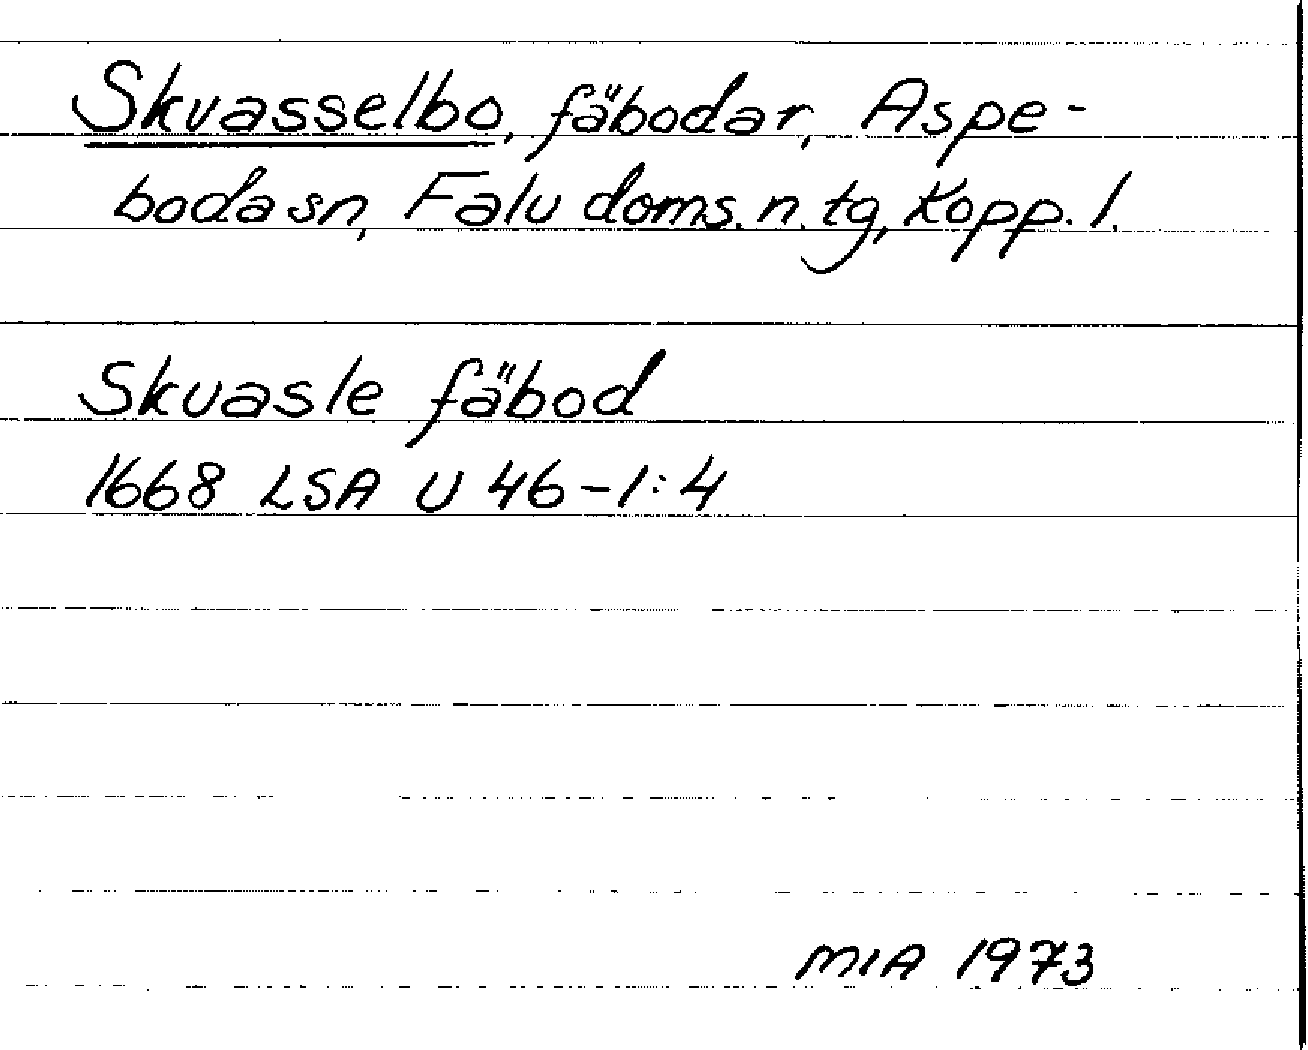 Skvasselbo, fäbodar, Aspe-
boda sn, Falu doms. n. tg, Kopp. l.
Skuasle fäbod
1668 LSA U 46-1:4
MIA 1973